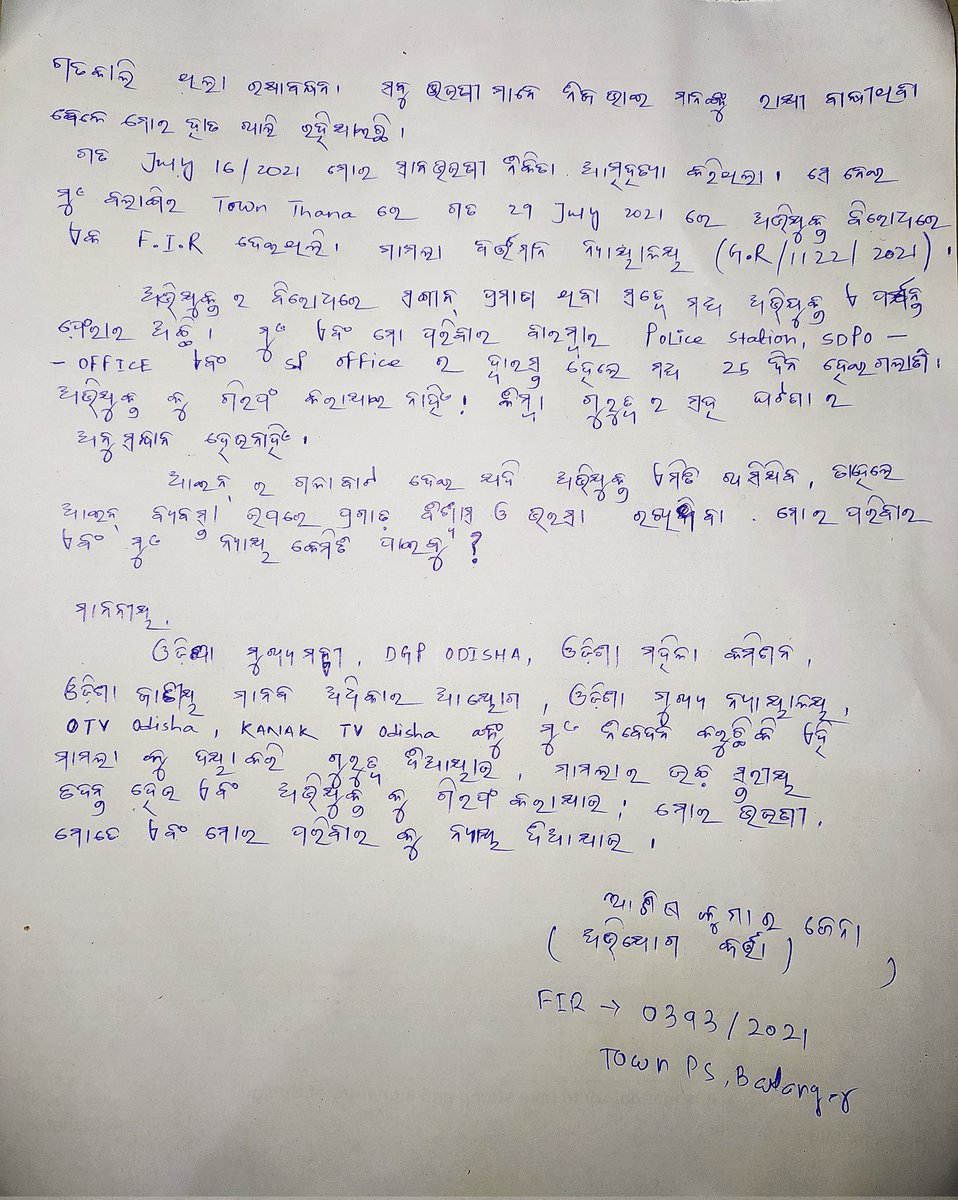 ଗତକାଲି ଥିଲା ରକ୍ଷାବନ୍ଧନ। ସବୁ ଭଉଣୀ ମାନେ ନିଜ ଭାଇ ମାନଙ୍କୁ ରାକ୍ଷୀ ବାନ୍ଧୀଥିବା
ବେଳେ ମୋର ହାତ ଖାଲି ରହିଯାଇଛି।
ଗତ July 16/2021 ମୋର ସାନଭଉଣୀ ନିକିତା ଆତ୍ମହତ୍ୟା କରିଥିଲା। ସେ ନେଇ
ମୁଁ ବଲାଙ୍ଗିର Town Thana ରେ ଗତ 29 July 2021 ରେ ଅଭିଯୁକ୍ତ ବିରୋଧରେ
ଏକ F.I.R ଦେଇଥିଲି। ମାମଲା ବର୍ତ୍ତମାନ ନ୍ୟାୟାଳୟ (G.R/1122/2021).
ଅଭିଯୁକ୍ତ ର ବିରୋଧରେ ପ୍ରମାଣ ଥିବା ସତ୍ତ୍ୱେ ମଧ୍ୟ ଅଭିଯୁକ୍ତ ଏ ପର୍ଯ୍ୟନ୍ତ
ଫେରାର ଅଛି। ମୁଁ ଏବଂ ମୋ ପରିବାର ବାରମ୍ବାର Police Station, SDPO —
— OFFICE ଏବଂ SP office ର ଦ୍ୱାରସ୍ତ ହେଲେ ମଧ୍ୟ 25 ଦିନ ହେଇଗଲାଣି।
ଅଭିଯୁକ୍ତ କୁ ଗିରଫ କରାଯାଇ ନାହିଁ! କିମ୍ବା ଗୁରୁତ୍ୱ ର ସହ ଘଟଣା ର
ଅନୁସନ୍ଧାନ ହେଉନାହିଁ।
ଆଇନ୍ ର ଗଳାବାଟ ଦେଇ ଯଦି ଅଭିଯୁକ୍ତ ଏମିତି ଖସିଯିବ, ତାହେଲେ
ଆଇନ୍ ବ୍ୟବସ୍ଥା ଉପରେ ପ୍ରଗାଢ଼ ବିଶ୍ୱାସ ଓ ଭରସା ରଖିଥିବା. ମୋର ପରିବାର
ଏବଂ ମୁଁ ନ୍ୟାୟ କେମିତି ପାଇବୁ?
ମାନନୀୟ,
ଓଡ଼ିଶା ମୁଖ୍ୟମନ୍ତ୍ରୀ, DGP ODISHA, ଓଡ଼ିଶା ମହିଳା କମିଶନ,
ଓଡ଼ିଶା ଜାତୀୟ ମାନବ ଅଧିକାର ଆୟୋଗ, ଓଡ଼ିଶା ମୁଖ୍ୟ ନ୍ୟାୟାଳୟ,
OTV Odisha, KANAK TV Odisha ଙ୍କୁ ମୁଁ ନିବେଦନ କରୁଛି କି ଏହି
ମାମଲା କୁ ଦୟାକରି ଗୁରୁତ୍ୱ ଦିଆଯାଉ, ମାମଲାର ଉଚ୍ଚ ସ୍ତରୀୟ
ତଦନ୍ତ ହେଉ ଏବଂ ଅଭିଯୁକ୍ତ କୁ ଗିରଫ କରାଯାଉ; ମୋର ଭଉଣୀ,
ମୋତେ ଏବଂ ମୋର ପରିବାର କୁ ନ୍ୟାୟ ଦିଆଯାଉ।
ଆଶିଷ କୁମାର ଜେନା
(ଅଭିଯୋଗ କର୍ତ୍ତା)
FIR → 0393/2021
Town PS, Balangir